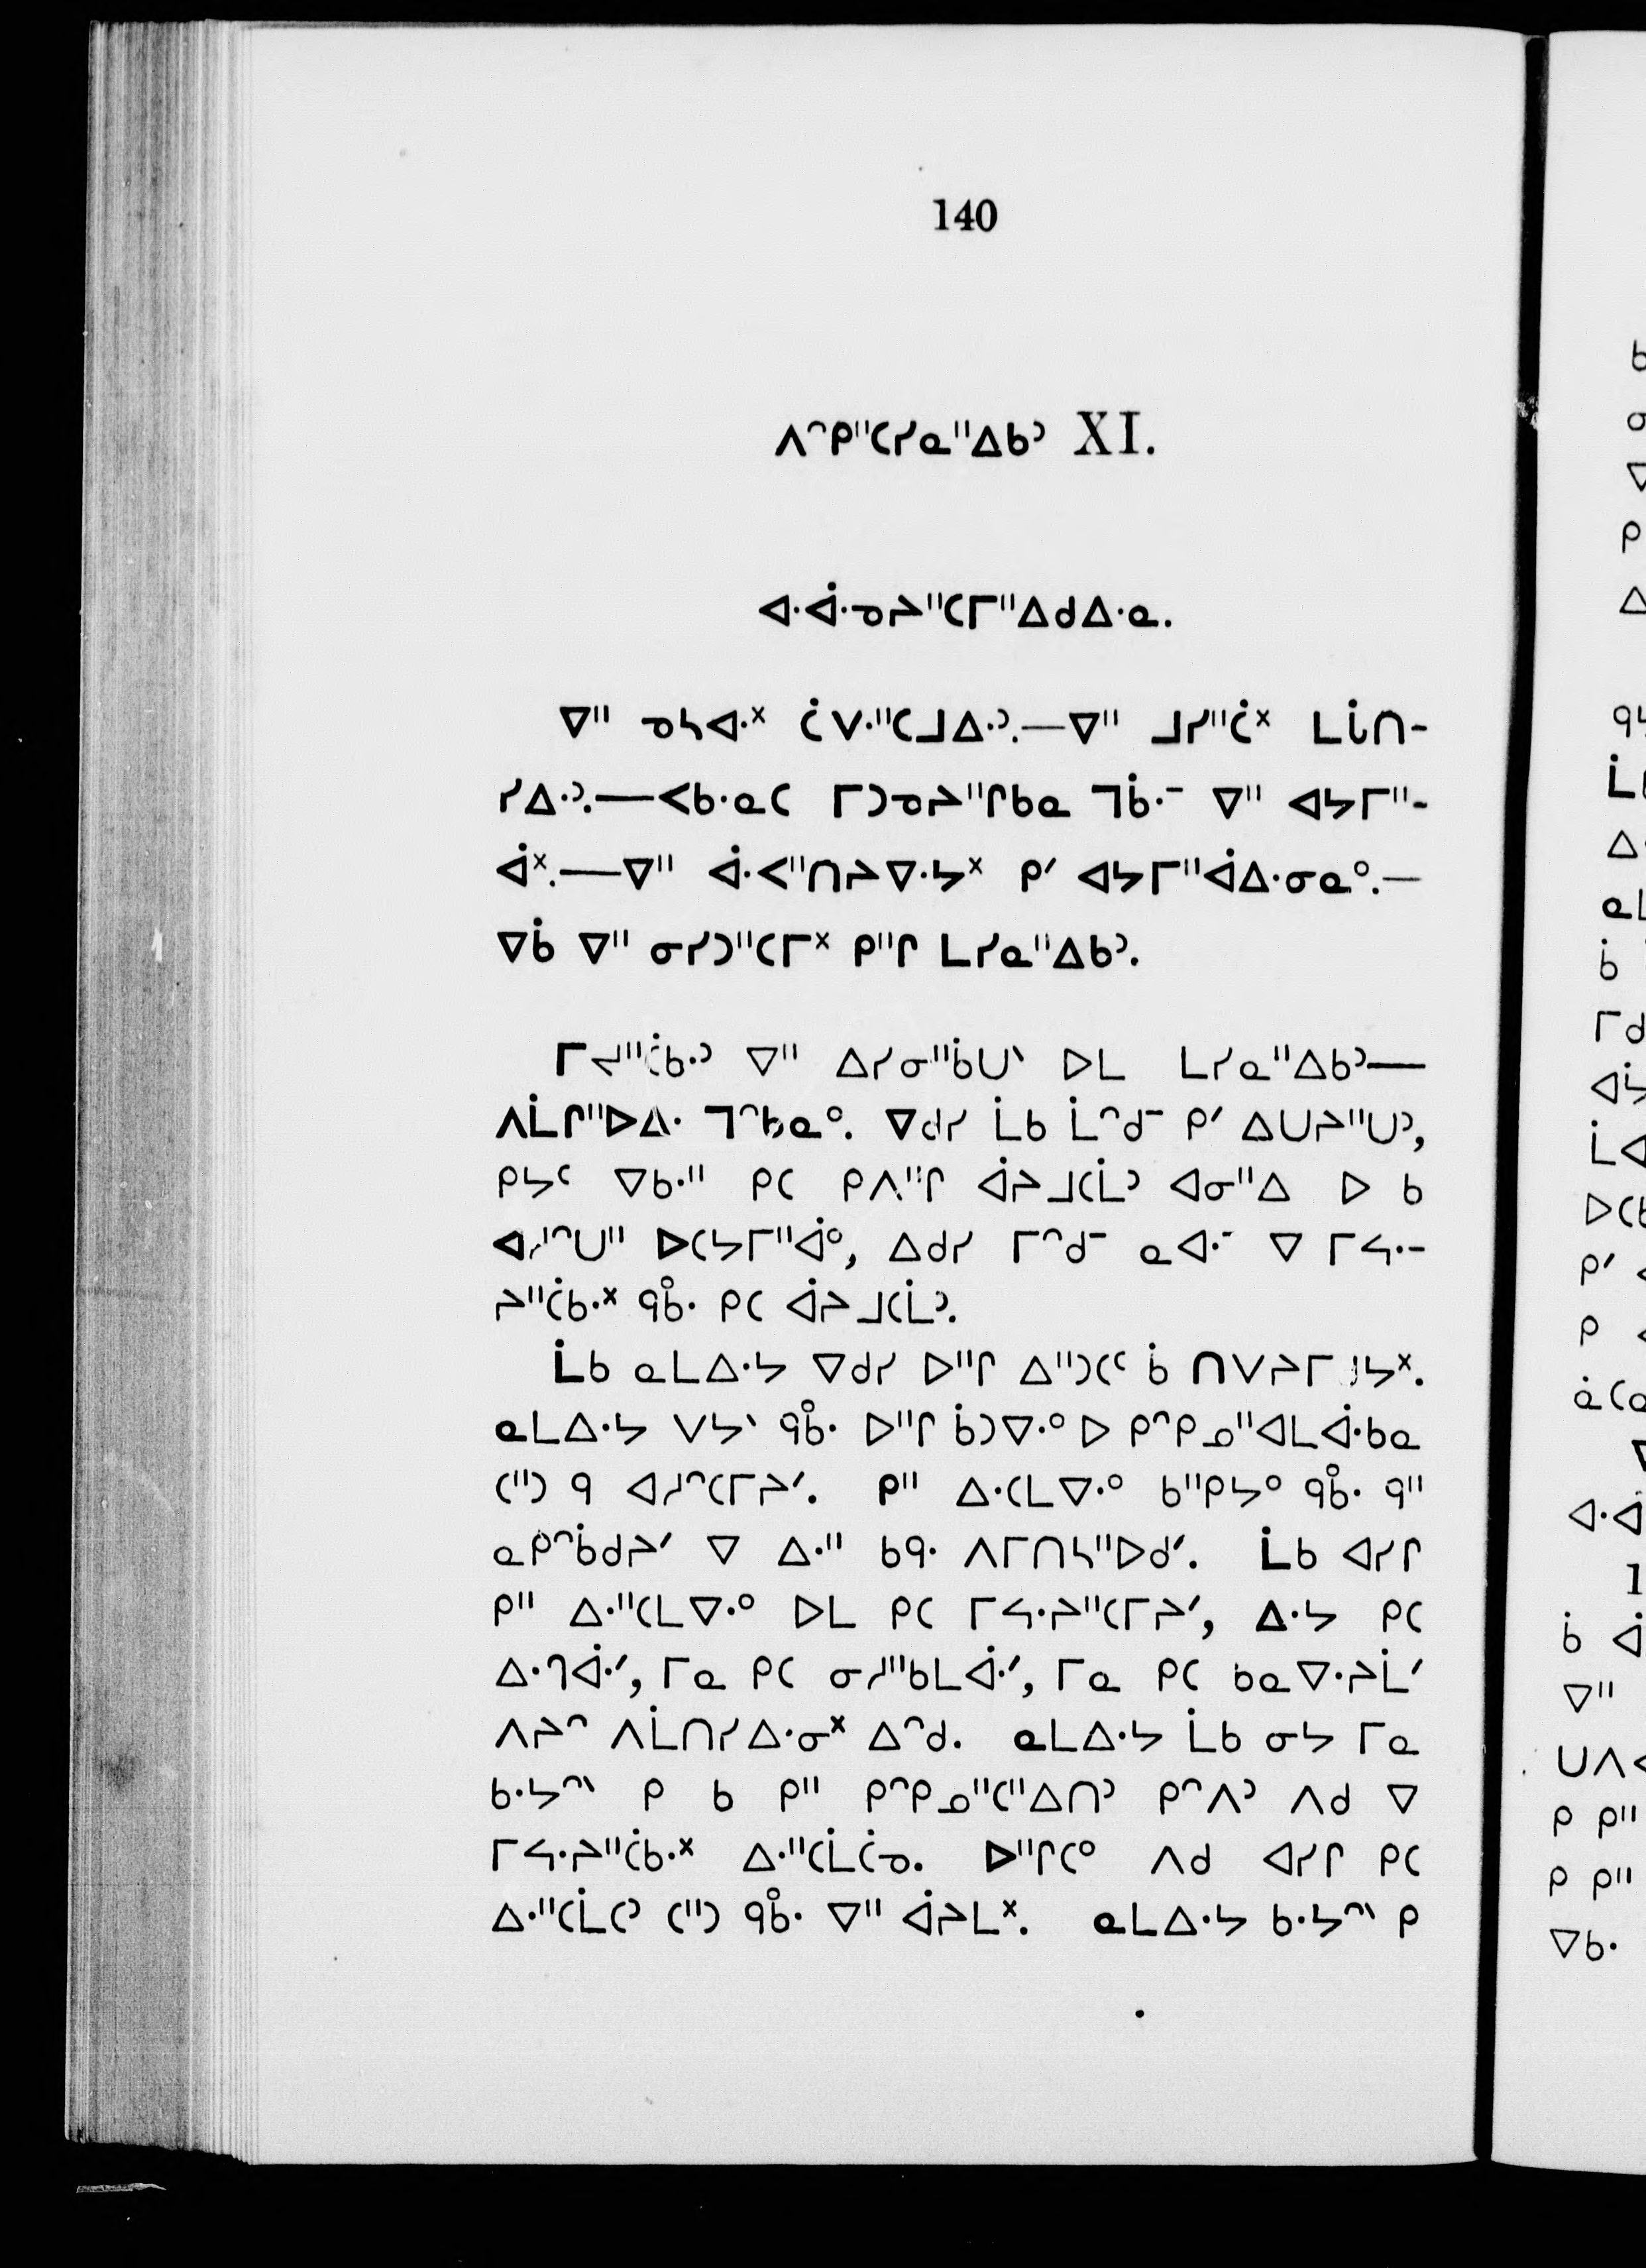 140
ᐱᐢᑭᐦᑕᓯᓇᐦᐃᑲᐣ XI.
ᐊᐧᐋᐧᓀᔨᐦᑕᒥᐦᐃᑯᐃᐧᓇ.
ᐁᐦ ᓀᓴᐊᐧᕽ ᑖᐯᐧᐦᑕᒧᐃᐧᐣ.—ᐁᐦ ᒧᓯᐦᑖᕽ ᒪᒑᑎ-
ᓯᐃᐧᐣ.—ᐸᑲᐧᓇᑕ ᒥᑐᓀᔨᐦᒋᑲᓇ ᒣᑳᐧᐨ ᐁᐦ ᐊᔭᒥᐦ-
ᐋᕽ.—ᐁᐦ ᐋᐧᐸᐦᑎᔨᐁᐧᔭᕽ ᑭᐟ ᐊᔭᒥᐦᐋᐃᐧᓂᓇᐤ.—
ᐁᑳ ᐁᐦ ᓂᓯᑐᐦᑕᒥᕽ ᑭᐦᒋ ᒪᓯᓇᐦᐃᑲᐣ.
ᒥᔪᐦᑖᑲᐧᐣ ᐁᐦ ᐃᓯᓂᐦᑳᑌᐠ ᐅᒪ ᒪᓯᓇᐦᐃᑲᐣ—
ᐱᒫᒋᐦᐅᐃᐧ ᒣᐢᑲᓇᐤ. ᐁᑯᓯ ᒫᑲ ᒫᐢᑯᐨ ᑭᐟ ᐃᑌᔨᐦᑌᐣ,
ᑭᔭᐨ ᐁᑲᐧᐦ ᑭᑕ ᑭᐱᐦᒋ ᐋᔨᒧᑕᒫᐣ ᐊᓂᐦᐃ ᐅ ᑲ
ᐊᓱᐢᑌᐦ ᐅᑕᔭᒥᐦᐋᐤ, ᐃᑯᓯ ᒥᐢᑯᐨ ᓇᐊᐧᐨ ᐁ ᒥᔼ-
ᔨᐦᑖᑲᐧᕽ ᑫᑳᐧ ᑭᑕ ᐋᔨᒧᑕᒫᐣ.
ᒫᑲ ᓇᒪᐃᐧᔭ ᐁᑯᓯ ᐅᐦᒋ ᐃᐦᑐᑕᐨ ᑳ ᑎᐯᔨᒥᔭᕽ.
ᓇᒪᐃᐧᔭ ᐯᔭᐠ ᑫᑳᐧ ᐅᐦᒋ ᑳᑐᐁᐧᐤ ᐅ ᑭᐢᑭᓄᐦᐊᒪᐋᐧᑲᓇ
ᑕᐦᑐ ᑫ ᐊᓱᐢᑕᒥᔨᐟ. ᑭᐦ ᐃᐧᑕᒪᐁᐧᐤ ᑲᐦᑭᔭᐤ ᑫᑳᐧ ᑫᐦ
ᓇᑭᐢᑳᑯᔨᐟ ᐁ ᐃᐧᐦ ᑲᑫᐧ ᐱᒥᑎᓴᐦᐅᑯᐟ. ᒫᑲ ᐊᓯᒋ
ᑭᐦ ᐃᐧᐦᑕᒪᐁᐧᐤ ᐅᒪ ᑭᑕ ᒥᔼᔨᐦᑕᒥᔨᐟ, ᐃᐧᔭ ᑭᑕ
ᐃᐧᒉᐋᐧᐟ, ᒥᓇ ᑭᑕ ᓂᓱᐦᑲᒪᐋᐧᐟ, ᒥᓇ ᑭᑕ ᑲᓇᐁᐧᔨᒫᐟ
ᐱᔨᐢ ᐱᒫᑎᓯᐃᐧᓂᕽ ᐃᐢᑯ. ᓇᒪᐃᐧᔭ ᒫᑲ ᓂᔭ ᒥᓇ
ᑲᐧᔭᐢᐠ ᑭ ᑲ ᑭᐦ ᑭᐢᑭᓄᐦᑕᐦᐃᑎᐣ ᑭᐢᐱᐣ ᐱᑯ ᐁ
ᒥᔼᔨᐦᑖᑲᐧᕽ ᐃᐧᐦᑕᒫᑖᓀ. ᐅᐦᒋᑕᐤ ᐱᑯ ᐊᓯᒋ ᑭᑕ
ᐃᐧᐦᑕᒫᑕᐣ ᑕᐦᑐ ᑫᑳᐧ ᐁᐦ ᐋᔨᒪᕽ. ᓇᒪᐃᐧᔭ ᑲᐧᔭᐢᐠ ᑭ